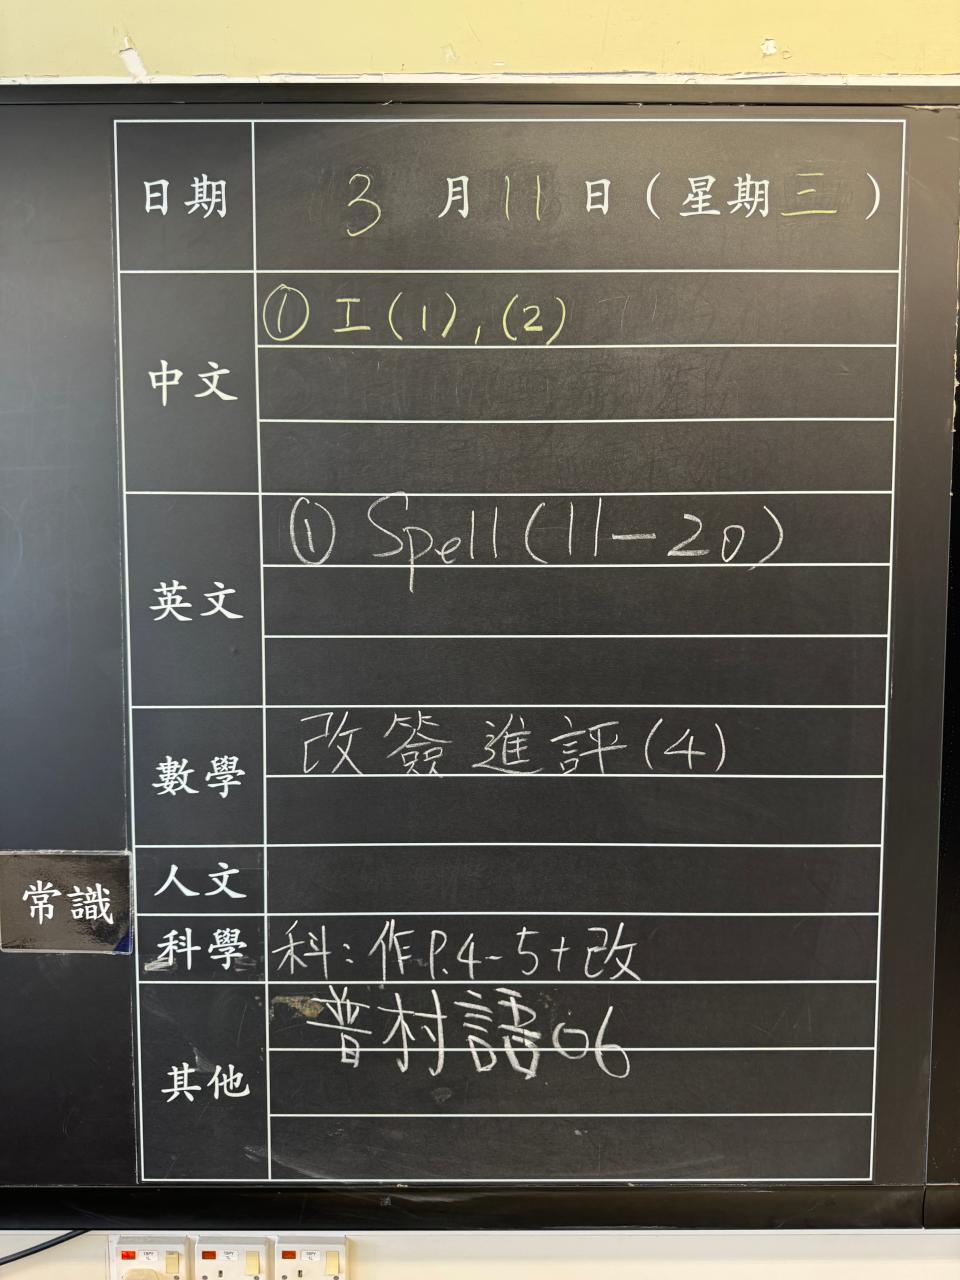 日期 3月11日（星期三）
中文 ① I(1),(2)
英文 ① Spell(11-20)
數學 改簽進評(4)
人文
常識
科學 科:作P.4-5+改
其他 普村語06